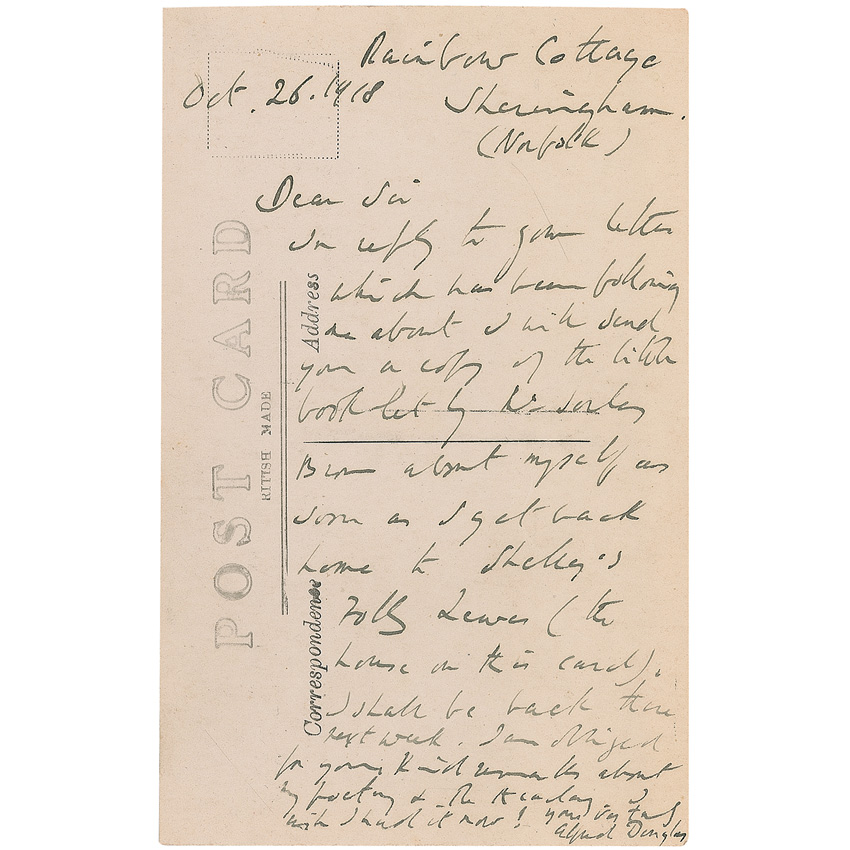 Rainbow Cottage
Oct. 26. 1918
Sheringham.
(Norfolk)
Dear Sir
In reply to your letter
which has been following
me about I will send
you a copy of the little
booklet by Mr Sorley
Brown about myself as
soon as I get back
home to Shelley's
Folly Lewes (the
house on this card).
I shall be back there
next week. I am obliged
for your kind remarks about
my poetry & the Academy. I
wish I had it now! yours very truly
Alfred Douglas
POST CARD
RITISH MADE
Address
Correspondence